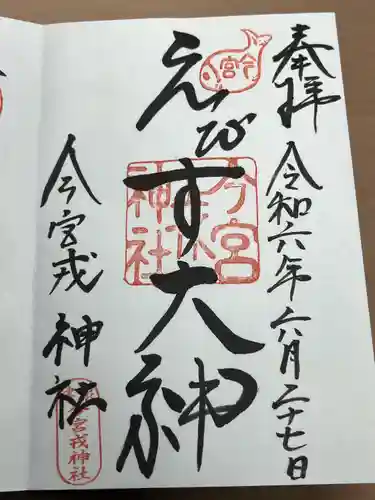 奉拝
令和六年六月二十七日
今宮
えびす大神
今宮
戎
神社
今宮戎神社
宮戎神社